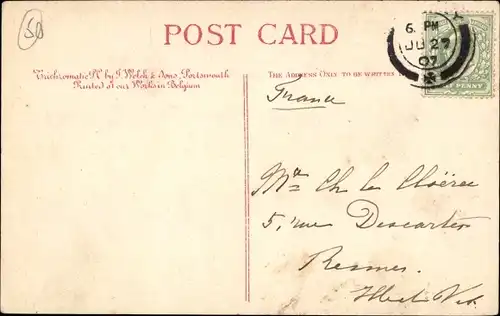 50
POST CARD
6. PM
JU 27
07
Trichromatic Pc. by J. Welch & Sons, Portsmouth
Printed at our Works in Belgium
THE ADDRESS ONLY TO BE WRITTEN
HALF PENNY
France
Ch. le
5, rue Descartes
Rennes.